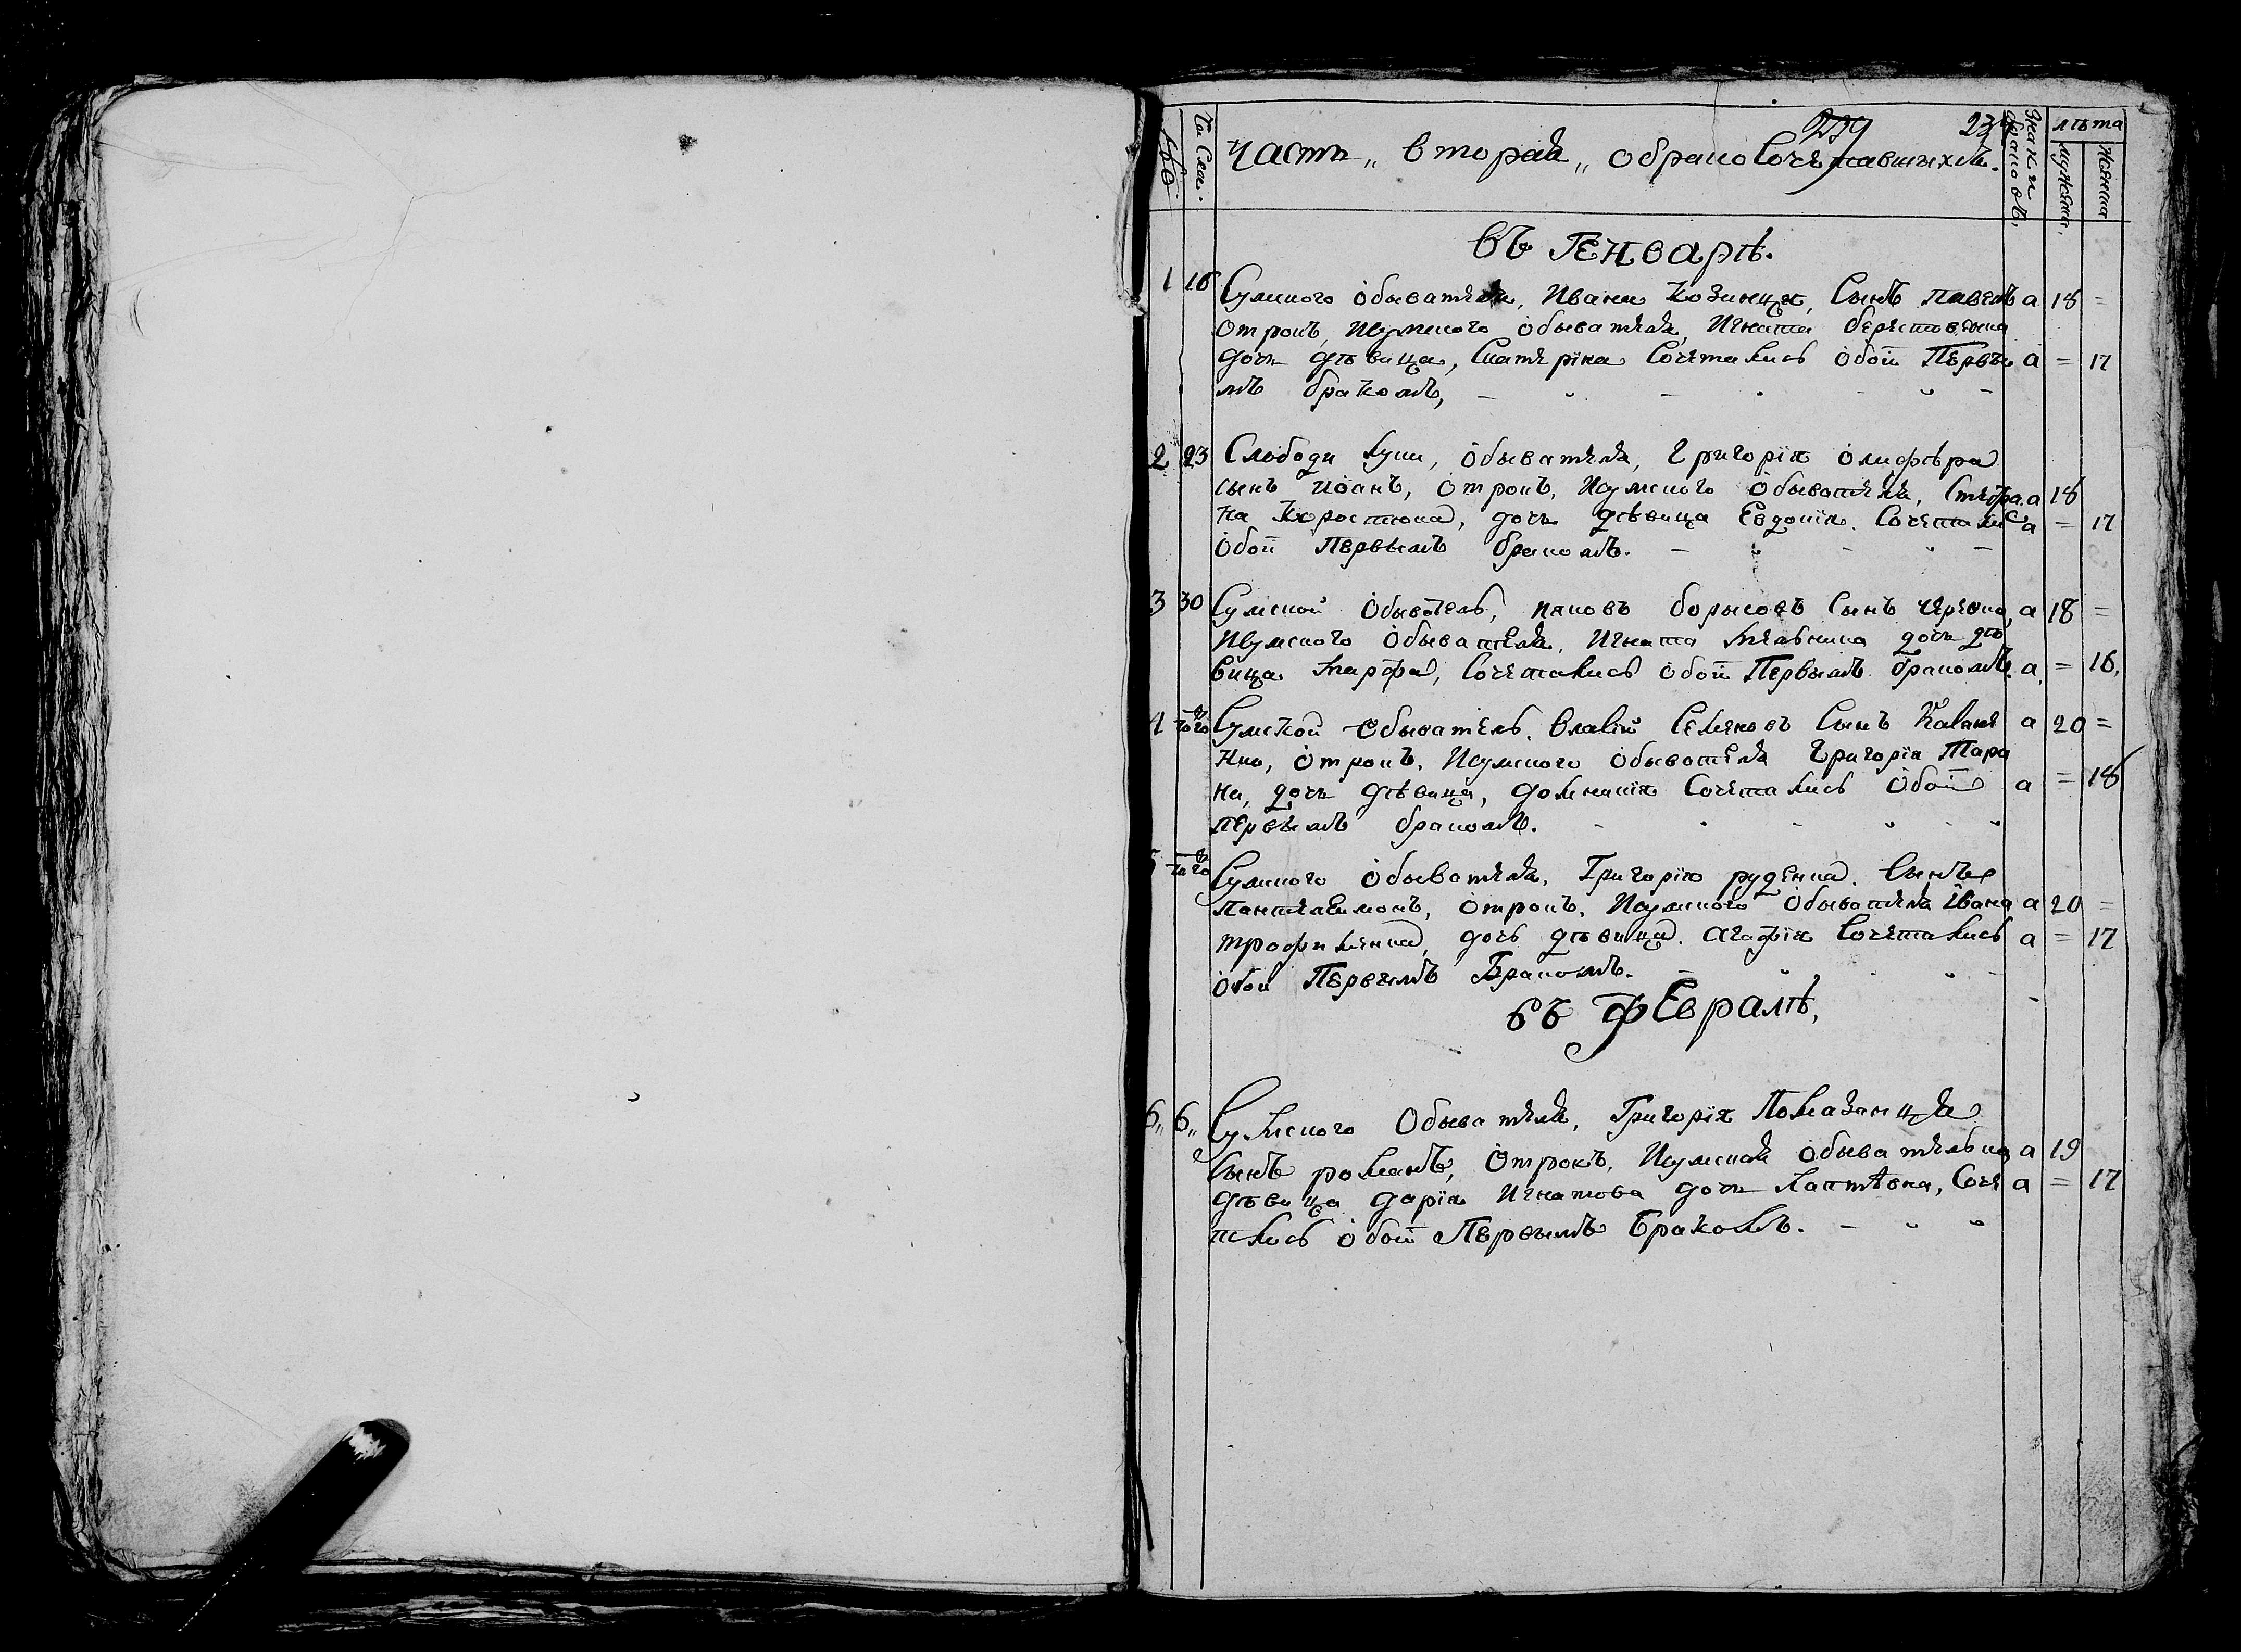 279 23
Часть „ вторая „ обракосочетавшихся.
знаки браковъ
лѣта
мужеска.
женска
въ Генварѣ.
1 16 Сумского обывателя, Ивана Козинця, Сынъ Павелъ а 18 =
отрокъ, Изумского обывателя, Игната берестовенка
дочь дѣвица, Екатеріна Сочетались обои Первы а = 17
мъ бракомъ, –
2 23 Слободи луки, обывателя, Григорія олифѣра
сынъ иоанъ, отрокъ, Изумского обывателя, Стефа а 18
на Коростюка, дочь дѣвица Евдокія. Сочеталис а = 17
обои Первымъ бракомъ. –
3 30 Сумской обыватель, яковъ борысовъ Сынъ а 18 =
Изумского обывателя, Игната мельника дочь дѣ
вица марфа, Сочетались обои Первымъ бракомъ. а. = 16,
4 Сумской обыватель. Власій Семеновъ Сынъ а 20 =
отрокъ, Изумского обывателя Григорія Тара
на, дочь дѣвица, домникія Сочетались обои а = 18
первымъ бракомъ.
5 Сумского обывателя, Григорію руденка. Сынъ
Пантелеимонъ, отрокъ, Изумского обывателя Івана а 20 =
трофименка, дочь дѣвица. агафія Сочетались а = 17
обои Первымъ Бракомъ. –
въ Февралѣ,
6„ 6„ Сумского обывателя, Григорія Помазанця
Сынъ романъ, отрокъ, Изумская обывателька а 19
дѣвица дарія Игнатова дочь Лаптѣвна, Соче а = 17
тлись обои Первымъ Бракомъ. –